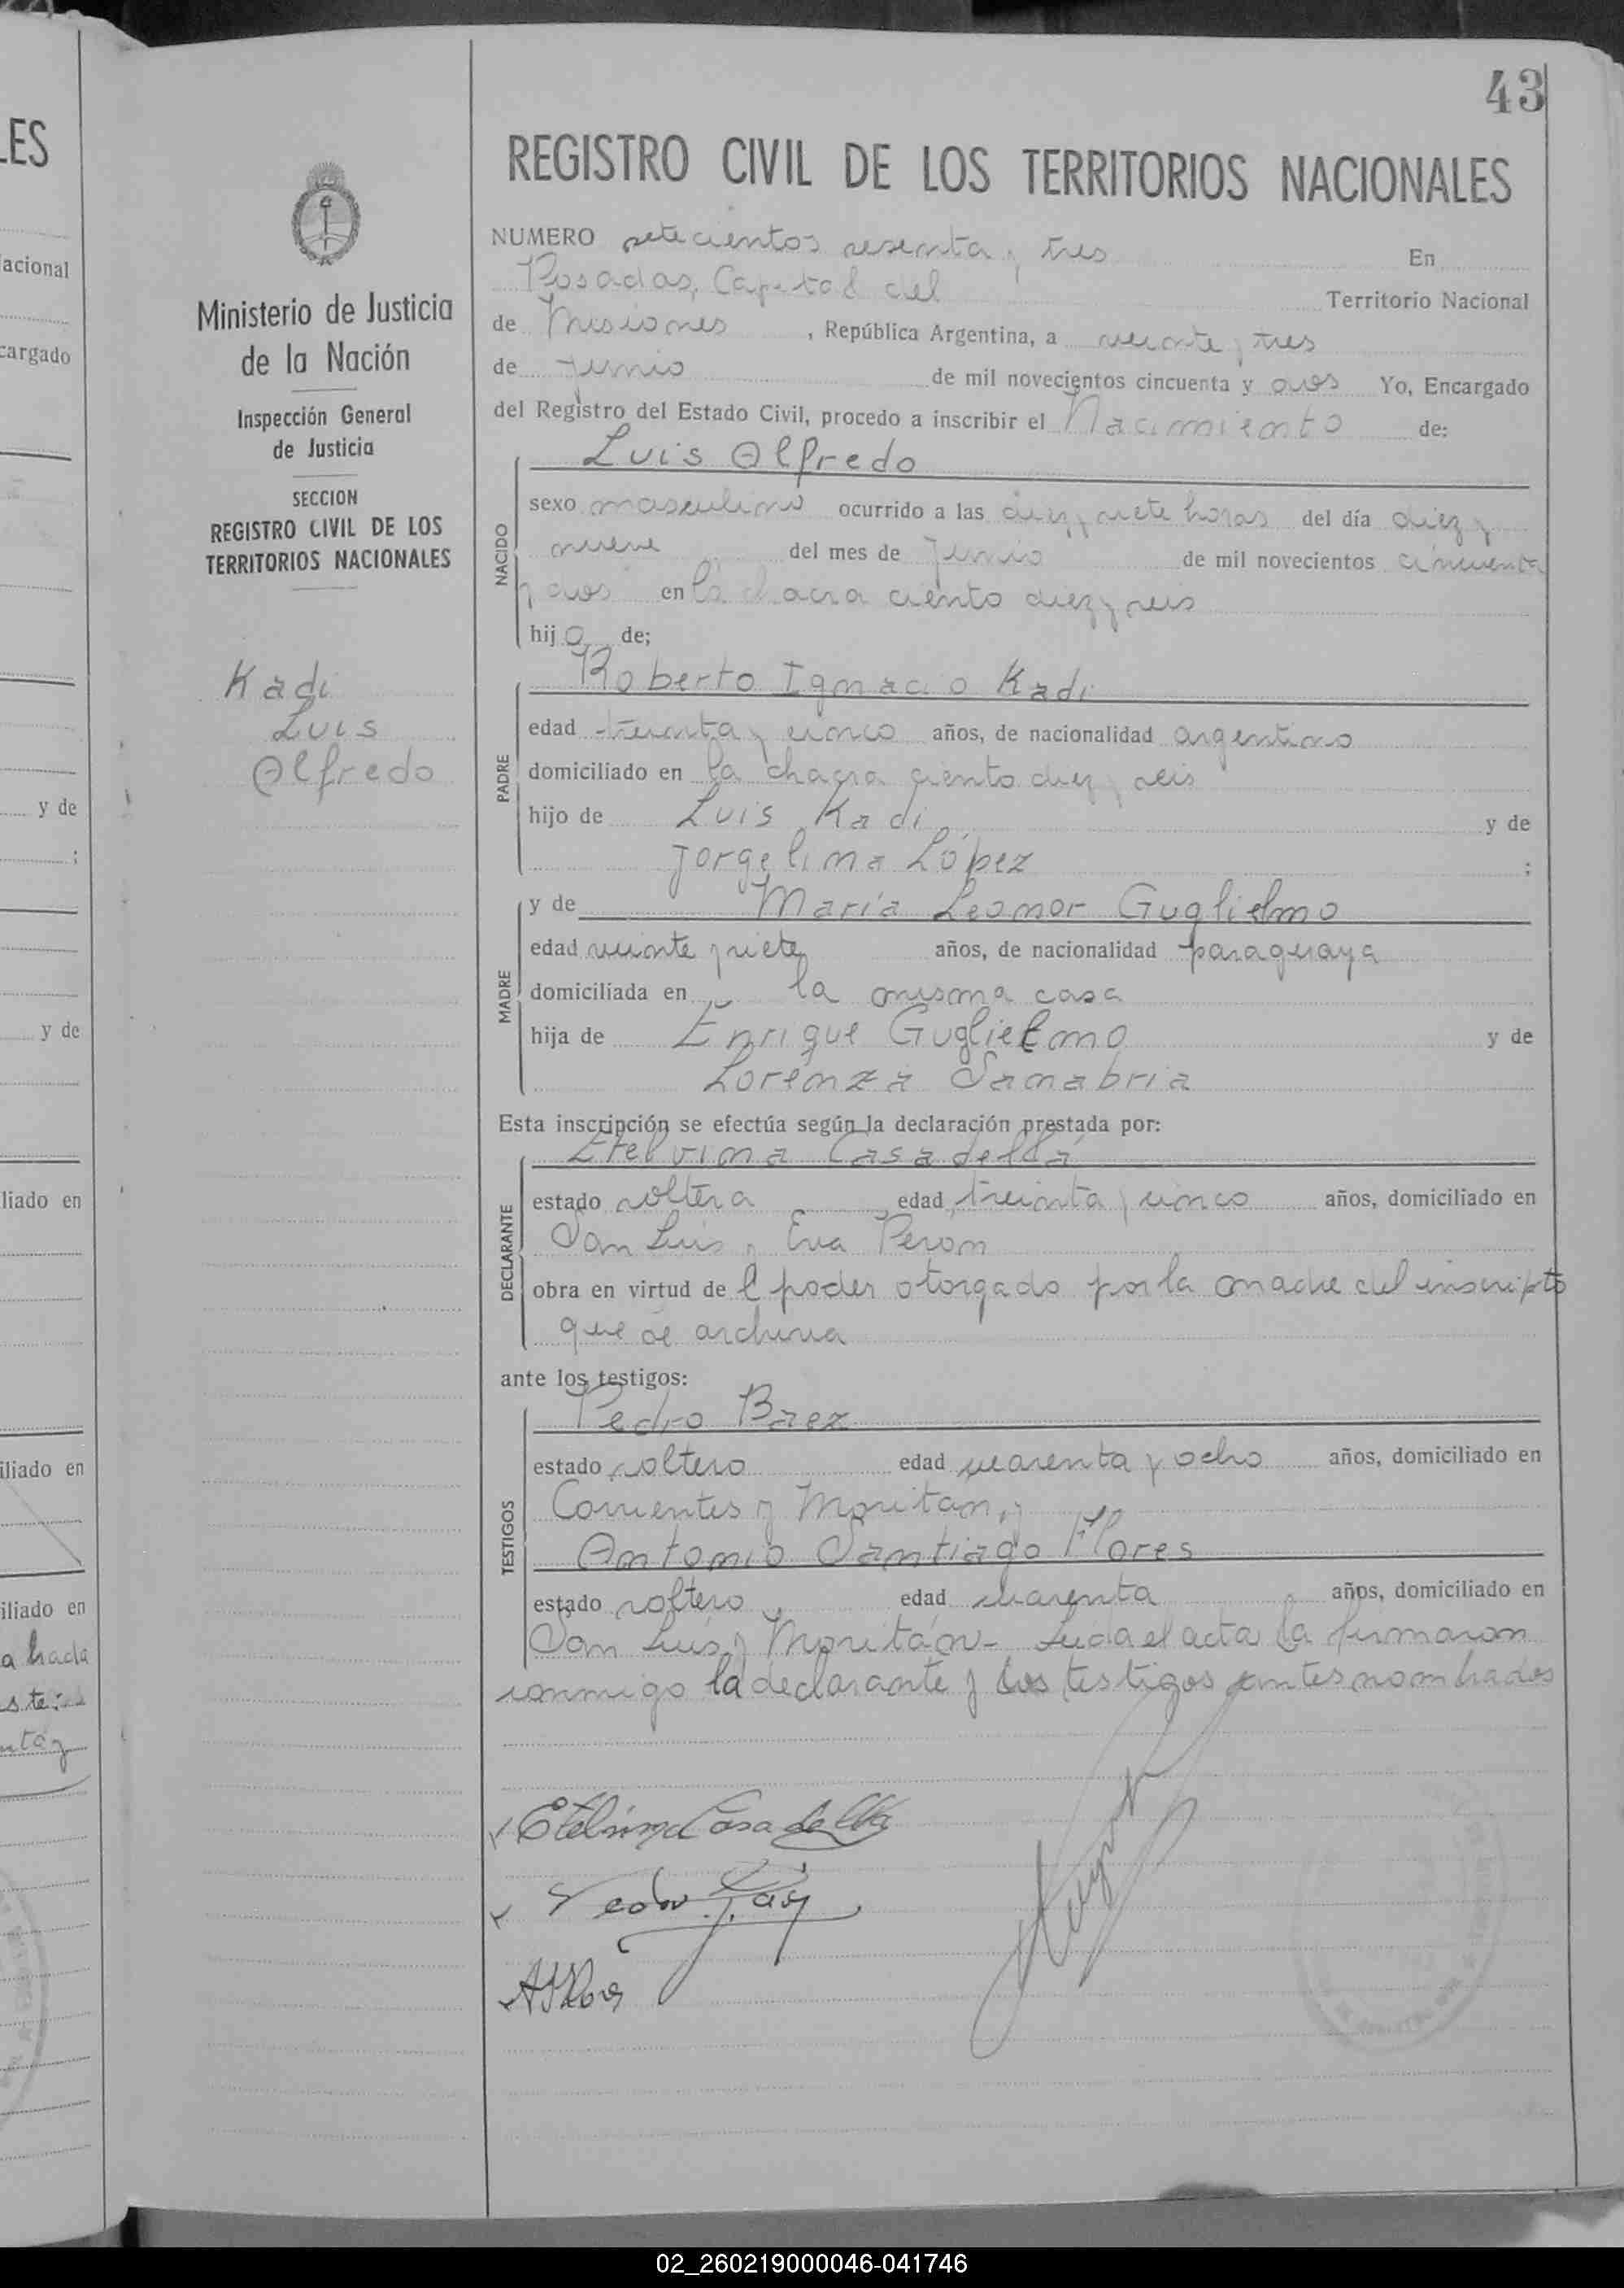 43
LES
acional
cargado
y de
;
y de
liado en
iliado en
iliado en
Ministerio de Justicia
de la Nación
Inspección General
de Justicia
SECCION
REGISTRO CIVIL DE LOS
TERRITORIOS NACIONALES
Kadi
Luis
Alfredo
REGISTRO CIVIL DE LOS TERRITORIOS NACIONALES
NUMERO setecientos sesenta y tres En
Posadas, Capital del Territorio Nacional
de Misiones , República Argentina, a veinte y tres
de junio de mil novecientos cincuenta y dos Yo, Encargado
del Registro del Estado Civil, procedo a inscribir el Nacimiento de:
NACIDO
Luis Alfredo
sexo masculino ocurrido a las diez y siete horas del día diez y
nueve del mes de junio de mil novecientos cincuenta
y dos en la chacra ciento diez y seis
hij o de;
PADRE
Roberto Ignacio Kadi
edad treinta y cinco años, de nacionalidad argentino
domiciliado en la chacra ciento diez y seis
hijo de Luis Kadi y de
Jorgelina López ;
MADRE
y de María Leonor Guglielmo
edad veinte y siete años, de nacionalidad paraguaya
domiciliada en la misma casa
hija de Enrique Guglielmo y de
Lorenza Sanabria
Esta inscripción se efectúa según la declaración prestada por:
DECLARANTE
Etelvina Casadellá
estado soltera edad treinta y cinco años, domiciliado en
San Luis y Eva Perón
obra en virtud de l poder otorgado por la madre del inscripto
que se archiva
ante los testigos:
TESTIGOS
Pedro Baez
estado soltero edad cuarenta y ocho años, domiciliado en
Corrientes y Moritan, y
Antonio Santiago Flores
estado soltero edad cuarenta años, domiciliado en
San Luis y Moritán- Leida el acta la firmaron
conmigo la declarante y los testigos antes nombrados
Etelvina Casadellá
02_260219000046-041746